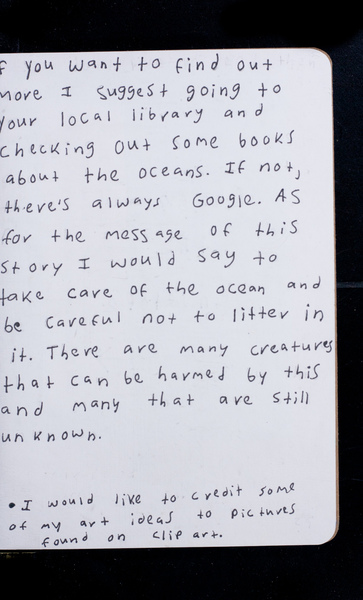 f you want to find out
more I suggest going to
your local library and
checking out some books
about the oceans. If not,
there's always Google. As
for the message of this
story I would say to
take care of the ocean and
be careful not to litter in
it. There are many creatures
that can be harmed by this
and many that are still
unknown.
• I would like to credit some
of my art ideas to pictures
found on clip art.